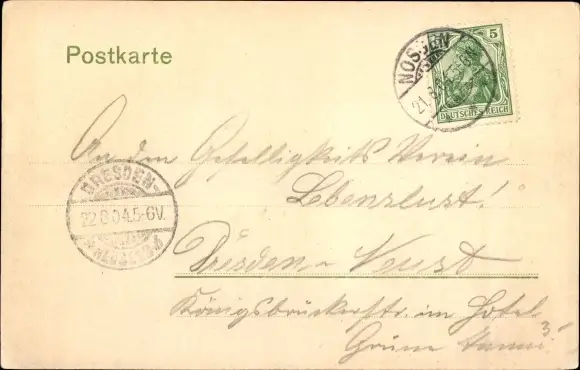 Postkarte
NOSSEN
21.8.
5
DEUTSCHES REICH
An den Geselligkeits Verein
Lebenslust!
DRESDEN-
22.8.04.5-6V.
Dresden-Neust
Königsbrückerstr. im Hotel
Grüne
3